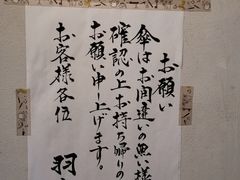 お願い
傘はお間違いの無い様
確認の上お持ち帰りの
お願い申し上げます。
お客様各位
羽